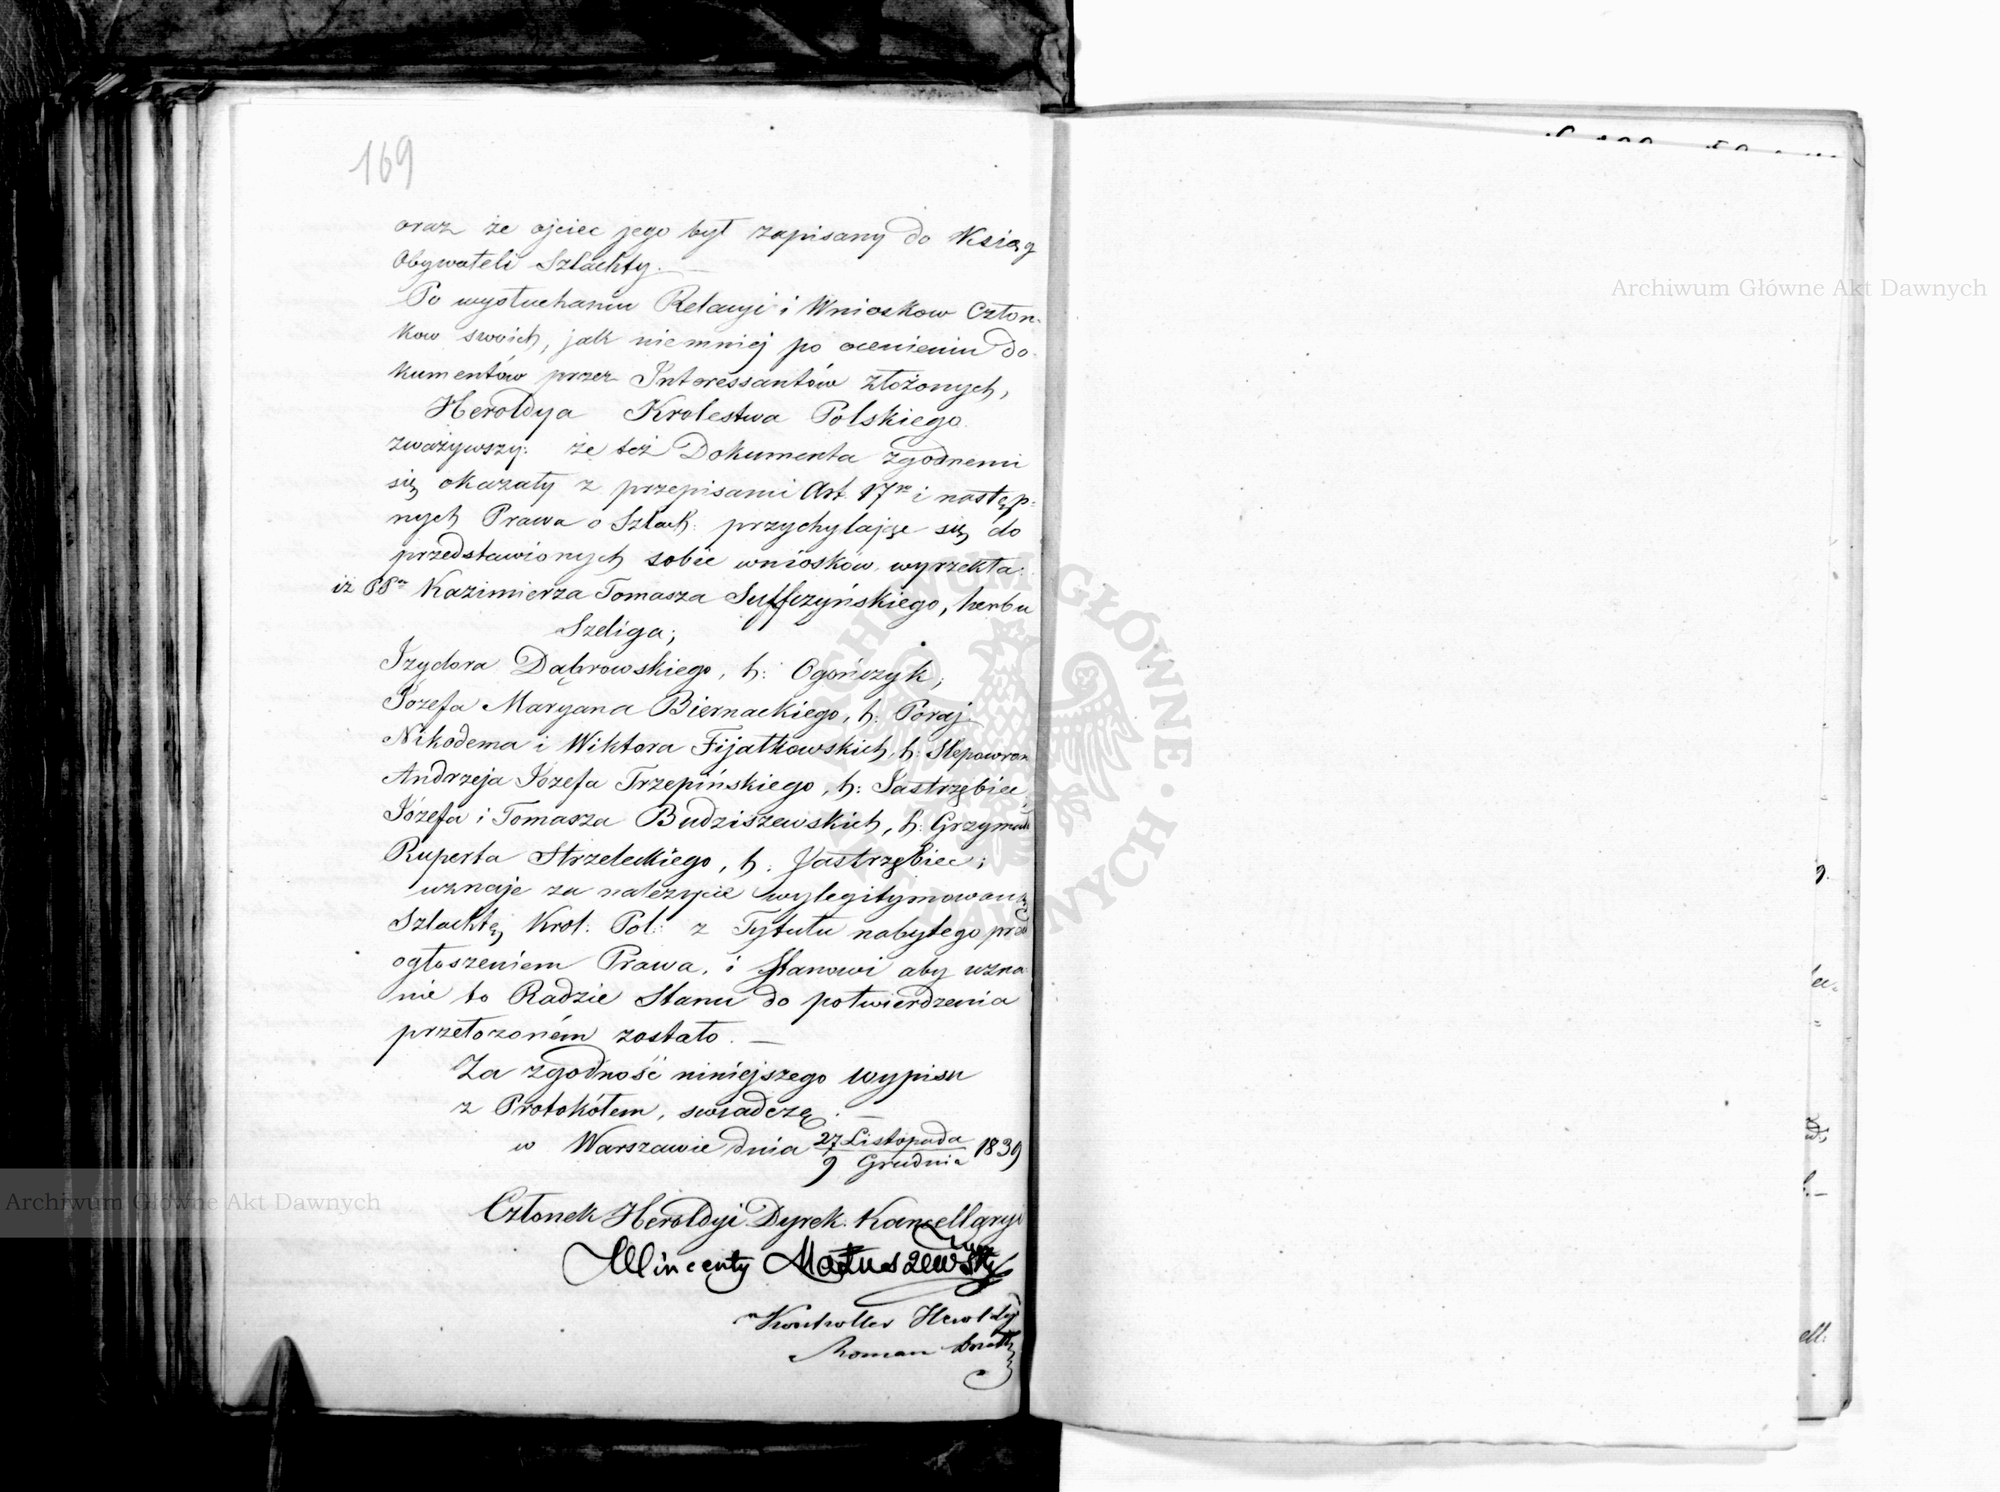 169
oraz że ojciec jego był zapisany do Ksiąg
Obywateli Szlachty. —
Po wysłuchaniu Relacyi i Wniosków Człon-
kow swoich, jak niemniej po ocenieniu do-
kumentów przez Interessantów złożonych,
Heroldya Krolestwa Polskiego.
zważywszy: że też Dokumenta zgodnemi
się okazały z przepisami Art. 17 i następ-
nych Prawa o Szlach: przychylając się do
przedstawionych sobie wniosków, wyrzekła:
iż PP Kazimierza Tomasza Suffczyńskiego, herbu
Szeliga;
Izydora Dąbrowskiego, h: Ogończyk;
Józefa Maryana Biernackiego, h: Poraj.
Nikodema i Wiktora Fijałkowskich, h: Slepowron
Andrzeja Józefa Trzepińskiego, h: Jastrzębiec,
Józefa i Tomasza Budziszewskich, h: Grzymała
Ruperta Strzeleckiego, h: Jastrzębiec;
uznaje za należycie wylegitymowaną
Szlachtę Krol: Pol: z Tytułu nabytego przed
ogłoszeniem Prawa, i Stanowi aby uzna-
nie to Radzie Stanu do potwierdzenia
przełożoném zostało. —
Za zgodność niniejszego wypisu
z Protokółem, swiadczę. —
w Warszawie dnia 27 Listopada 1839
9 Grudnia
Członek Heroldyi Dyrek. Kancellaryi
Wincenty Matuszewski
Kontroller Heroldyi
Roman
Archiwum Główne Akt Dawnych
Archiwum Główne Akt Dawnych
ARCHIWUM GŁÓWNE AKT DAWNYCH